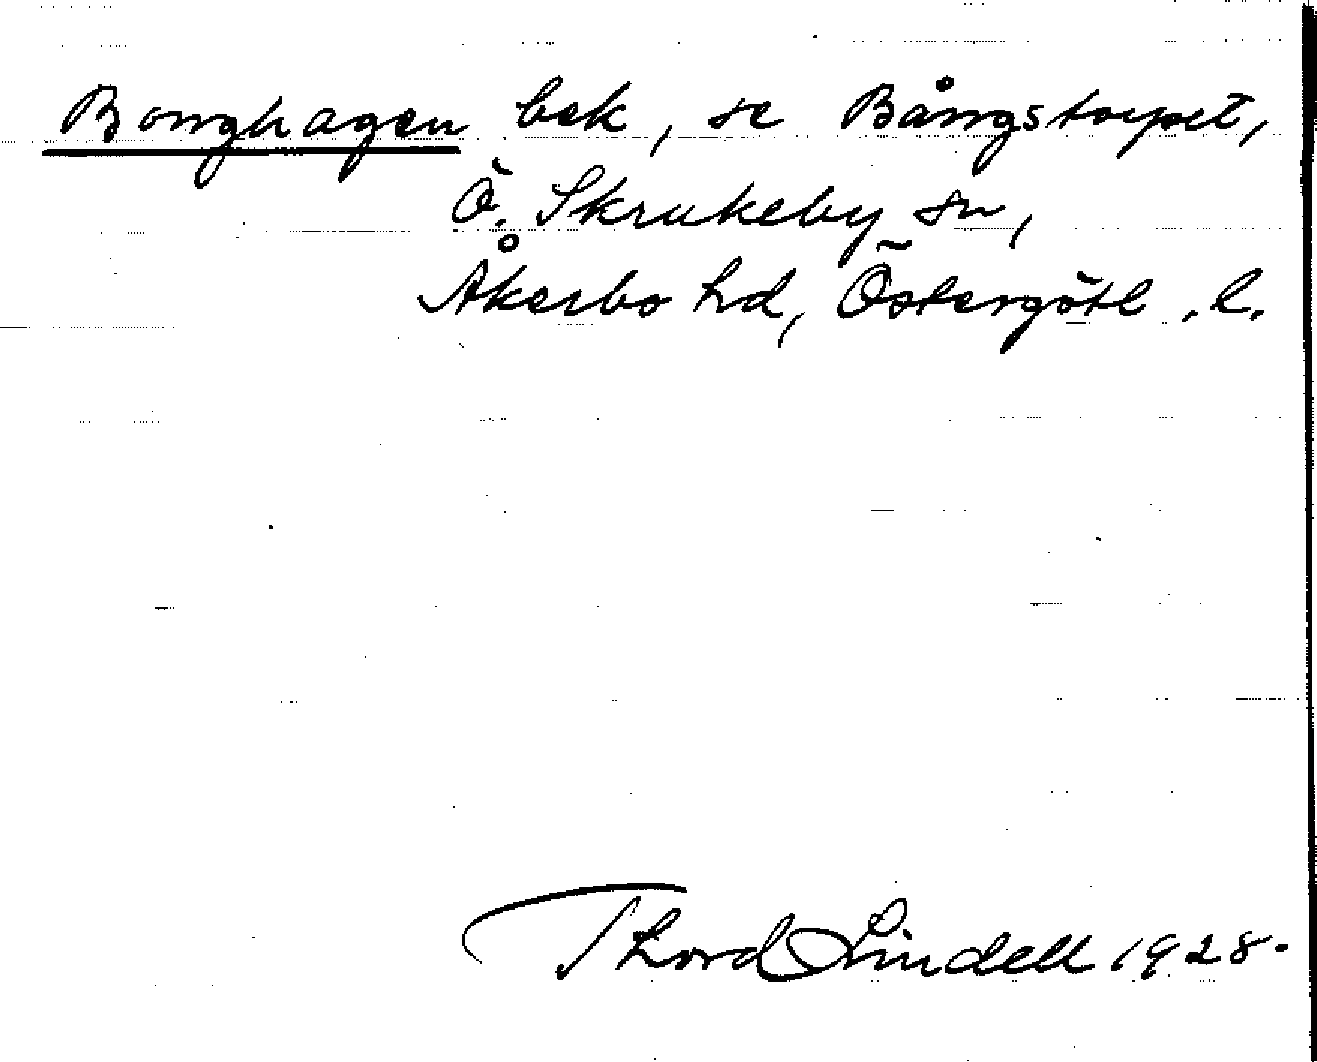 Bonghagen bek, se Bångstorpet,
Ö. Skrukeby sn,
Åkerbo hd, Östergötl. l.
Thord Lindell 1928.